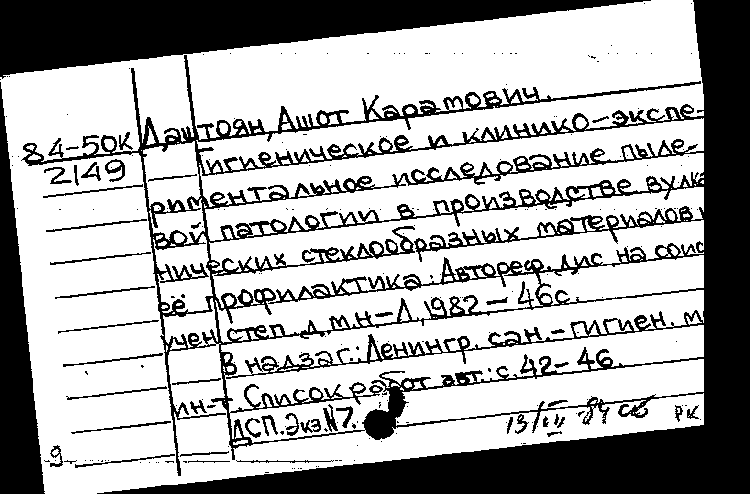 84-50К Даштоян, Ашот Карамович.
2149 Гигиеническое и клинико-экспе-
риментальное исследование пыле-
вой патологии в производстве вулка
нических стеклообразных материалов и
её профилактика: Автореф. дис. на соис
учен. степ. д.м.н.-Л, 1982 - 46с.
В надзаг.: Ленингр. сан.-гигиен. м
ин-т. Список работ авт.: с.42-46.
ДСП. Экз. N7.
13/III-84 РК
9